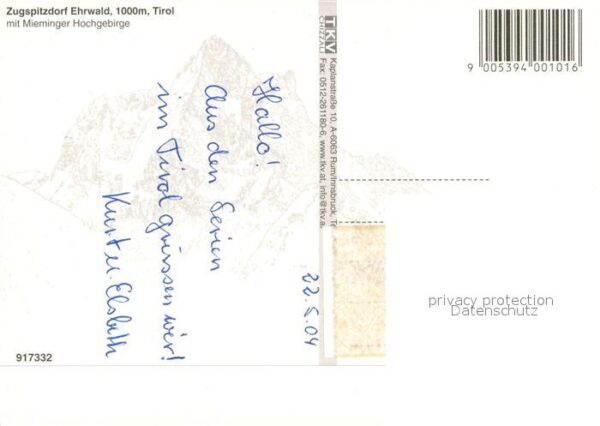 Zugspitzdorf Ehrwald, 1000m, Tirol
mit Mieminger Hochgebirge
Hallo!
Aus den Ferien
im Tirol grüssen wir!
Kurt u. Elsbeth
22.5.04
TKV
Kaplanstraße 10, A-6063 Rum/Innsbruck,
Fax: 0512-261180-6, www.tkv.at,
9 005394 001016
privacy protection
Datenschutz
917332